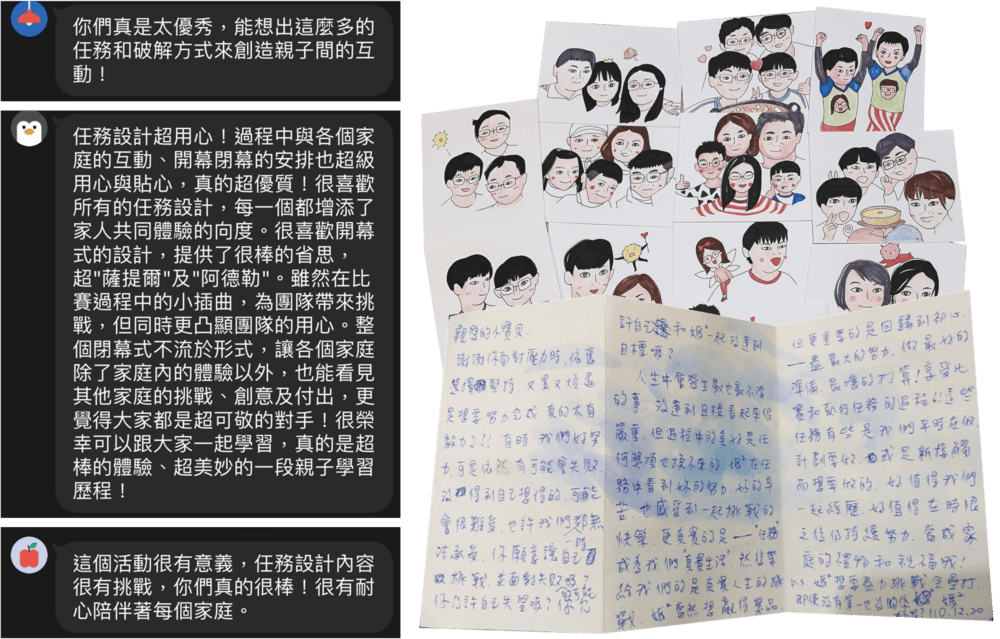 你們真是太優秀，能想出這麼多的
任務和破解方式來創造親子間的互
動！
任務設計超用心！過程中與各個家
庭的互動、開幕閉幕的安排也超級
用心與貼心，真的超優質！很喜歡
所有的任務設計，每一個都增添了
家人共同體驗的向度。很喜歡開幕
式的設計，提供了很棒的省思，
超"薩提爾"及"阿德勒"。雖然在比
賽過程中的小插曲，為團隊帶來挑
戰，但同時更凸顯團隊的用心。整
個閉幕式不流於形式，讓各個家庭
除了家庭內的體驗以外，也能看見
其他家庭的挑戰、創意及付出，更
覺得大家都是超可敬的對手！很榮
幸可以跟大家一起學習，真的是超
棒的體驗、超美妙的一段親子學習
歷程！
這個活動很有意義，任務設計內容
很有挑戰，你們真的很棒！很有耐
心陪伴著每個家庭。
親愛的小寶貝
謝謝你面對壓力時，依舊
堅持，又累又煩還
是想要努力完成 真的太有
毅力了!! 有時 我們好努
力，可是依然有可能會失敗
沒得到自己想得的，可能
會很難受，也許我們都無
法承受，你願意讓自己
挑戰，並面對失敗嗎？
你允許自己失望嗎？你允
許自己和媽媽一起沒達到
目標嗎？
人生中會發生數也數不清
的事，沒達到目標看起來很
嚴重，但過程中的美好是任
何獎項也換不來的，媽媽在任
務中看到妳的努力，妳的辛
苦，也感受到一起挑戰的
快樂，更真實的是——"任務"
成為我們"真實生活"，然後
給我們的是真實人生的挑
戰，媽媽當然想贏得獎品
但更重要的是回歸到初心
——盡最大的努力，做最好的
準備，最壞的打算！享受比
賽和執行任務的過程!! 這些
任務有些是我們平時在做
計劃要做，或是新接觸
而想要做的，好值得我們
一起經歷，好值得在時限
之後仍持續努力，當成家
庭的禮物和祝福哦！
p.s. 媽媽想要盡力挑戰
即便沒有第一也沒關係 媽媽
110.12.20